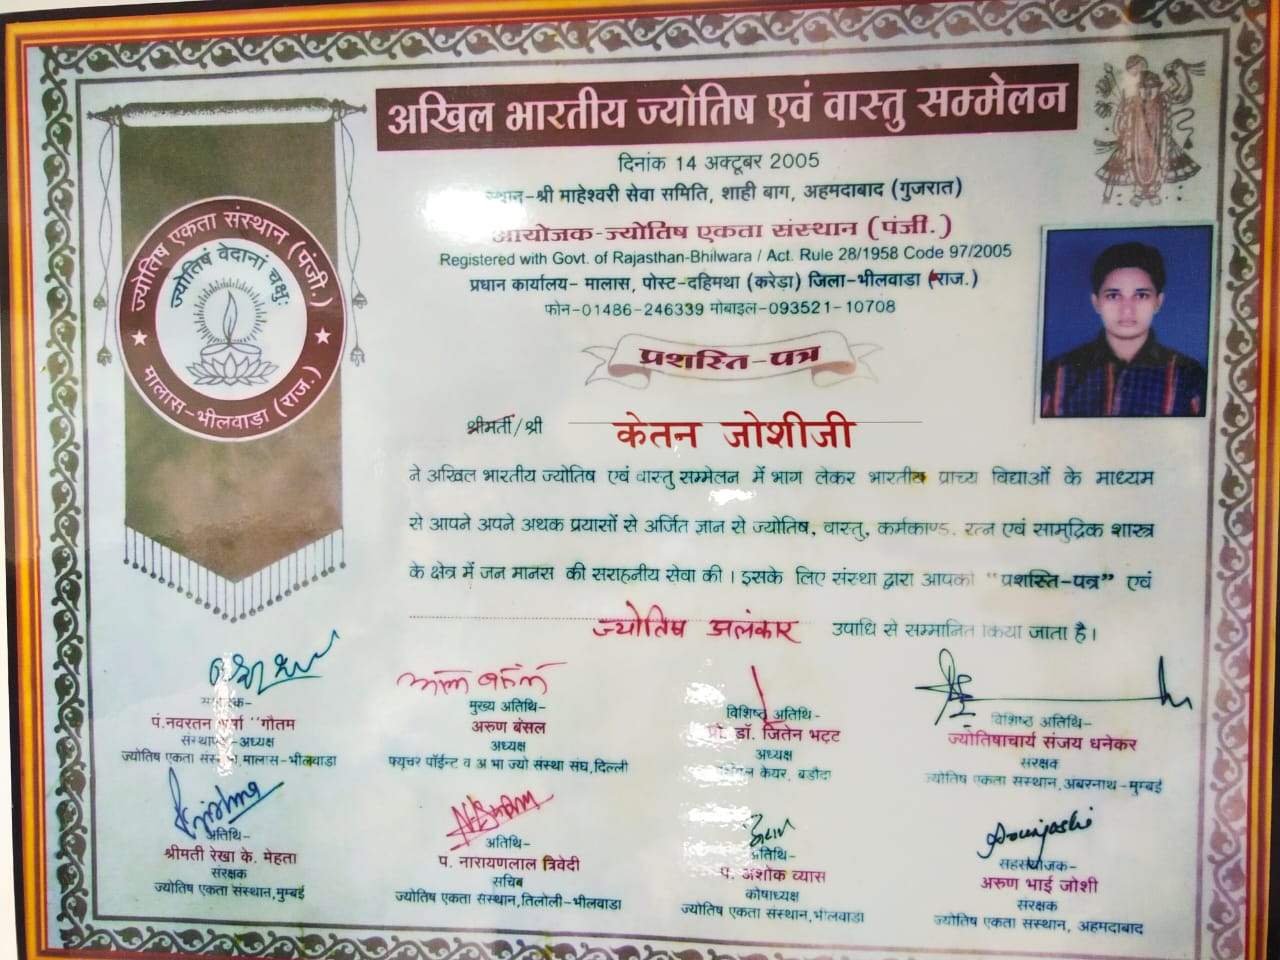 अखिल भारतीय ज्योतिष एवं वास्तु सम्मेलन
दिनांक 14 अक्टूबर 2005
स्थान-श्री माहेश्वरी सेवा समिति, शाही बाग, अहमदाबाद (गुजरात)
आयोजक-ज्योतिष एकता संस्थान (पंजी.)
Registered with Govt. of Rajasthan-Bhilwara / Act. Rule 28/1958 Code 97/2005
प्रधान कार्यालय- मालास, पोस्ट-दहिमथा (करेड़ा) जिला-भीलवाडा (राज.)
फोन-01486-246339 मोबाइल-093521-10708
ज्योतिष एकता संस्थान (पंजी.)
ज्योतिषं वेदानां चक्षुः
मालास-भीलवाड़ा (राज.)
प्रशस्ति-पत्र
श्रीमती/श्री केतन जोशीजी
ने अखिल भारतीय ज्योतिष एवं वास्तु सम्मेलन में भाग लेकर भारतीय प्राच्य विद्याओं के माध्यम
से आपने अपने अथक प्रयासों से अर्जित ज्ञान से ज्योतिष, वास्तु, कर्मकाण्ड, रत्न एवं सामुद्रिक शास्त्र
के क्षेत्र में जन मानस की सराहनीय सेवा की। इसके लिए संस्था द्वारा आपको "प्रशस्ति-पत्र" एवं
ज्योतिष अलंकार उपाधि से सम्मानित किया जाता है।
पं.नवरतन "गौतम
संस्थापक-अध्यक्ष
ज्योतिष एकता संस्थान,मालास-भीलवाडा
मुख्य अतिथि-
अरुण बंसल
अध्यक्ष
फ्यूचर पॉईन्ट व अ भा ज्यो संस्था संघ,दिल्ली
विशिष्ठ अतिथि-
प्रो. डॉ. जितेन भट्ट
अध्यक्ष
केयर, बडौदा
विशिष्ठ अतिथि-
ज्योतिषाचार्य संजय धनेकर
संरक्षक
ज्योतिष एकता संस्थान,अंबरनाथ-मुम्बई
अतिथि-
श्रीमती रेखा के. मेहता
संरक्षक
ज्योतिष एकता संस्थान,मुम्बई
अतिथि-
प. नारायणलाल त्रिवेदी
सचिव
ज्योतिष एकता संस्थान,तिलोली-भीलवाडा
अतिथि-
प. अशोक व्यास
कोषाध्यक्ष
ज्योतिष एकता संस्थान,भीलवाडा
सहसंयोजक-
अरुण भाई जोशी
संरक्षक
ज्योतिष एकता संस्थान, अहमदाबाद